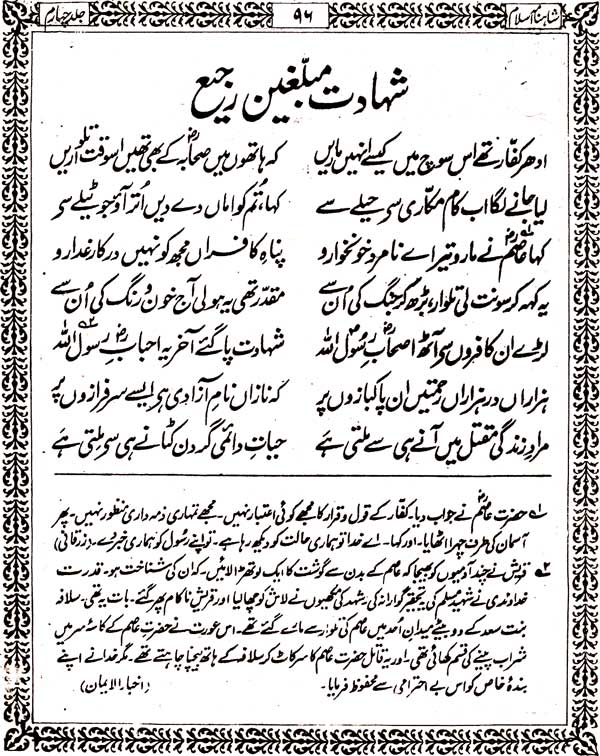 شاہنامہ اسلام ۹۶ جلد چہارم
شہادت مبلغین رجیع
ادھر کفار تھے اس سوچ میں کیسے انہیں ماریں کہ ہاتھوں میں صحابہؓ کے بھی تھیں اسوقت تلواریں
لیا جانے لگا اب کام مکاری سی حیلے سے کہا، تم کو اماں دے دیں اُتر آؤ جو ٹیلے سی
کہا عاصمؓ نے مارو تیر اے نامرد خونخوارو پناہِ کافراں مجھ کو نہیں درکار غدارو
یہ کہہ کر سونت لی تلوار، بڑھ کر جنگ کی اُن سے مقدر تھی یہ ہولی آج خون و رنگ کی اُن سے
لڑے ان کافروں سی آٹھ اصحابِؓ رسُول اللہ شہادت پا گئے آخر یہ احبابِؓ رسُول اللہ
ہزاراں در ہزاراں رحمتیں ان پاکبازوں پر کہ نازاں نامِ آزادی ہی ایسے سرفرازوں پر
مرادِ زندگی مقتل میں آنے ہی سے ملتی ہے حیاتِ دائمی گردن کٹانے ہی سی ملتی ہے
۱؎ حضرت عاصمؓ نے جواب دیا۔ کفار کے قول و قرار کا مجھے کوئی اعتبار نہیں۔ مجھے تمہاری ذمہ داری منظور نہیں۔ پھر
آسمان کی طرف چہرا اٹھایا۔ اور کہا۔ اے خدا تو ہماری حالت کو دیکھ رہا ہے۔ تو اپنے رسُول کو ہماری خبر دیدے۔ (زرقانی)
۲؎ قریش نے چند آدمیوں کو بھیجا کہ عاصم کے بدن سے گوشت کا ایک لوتھڑا لائیں۔ کہ ان کی شناخت ہو۔ قدرت
خداوندی نے شہید مسلم کی تحقیر گوارا نہ کی شہد کی مکھیوں نے لاش کو چھا لیا اور قریش ناکام پھر گئے۔ بات یہ تھی۔ سلافہ
بنت سعد کے دو بیٹے میدان اُحد میں عاصم کی تلوار سے مارے گئے تھے۔ اس عورت نے حضرت عاصم کے کاسۂ سر میں
شراب پینے کی قسم کھائی تھی۔ اور یہ قاتل حضرت عاصم کا سر کاٹ کر سلافہ کے ہاتھ بیچنا چاہتے تھے۔ مگر خدا نے اپنے
بندۂ خاص کو اس بے احترامی سے محفوظ فرمایا۔ (اخبار الایمان)